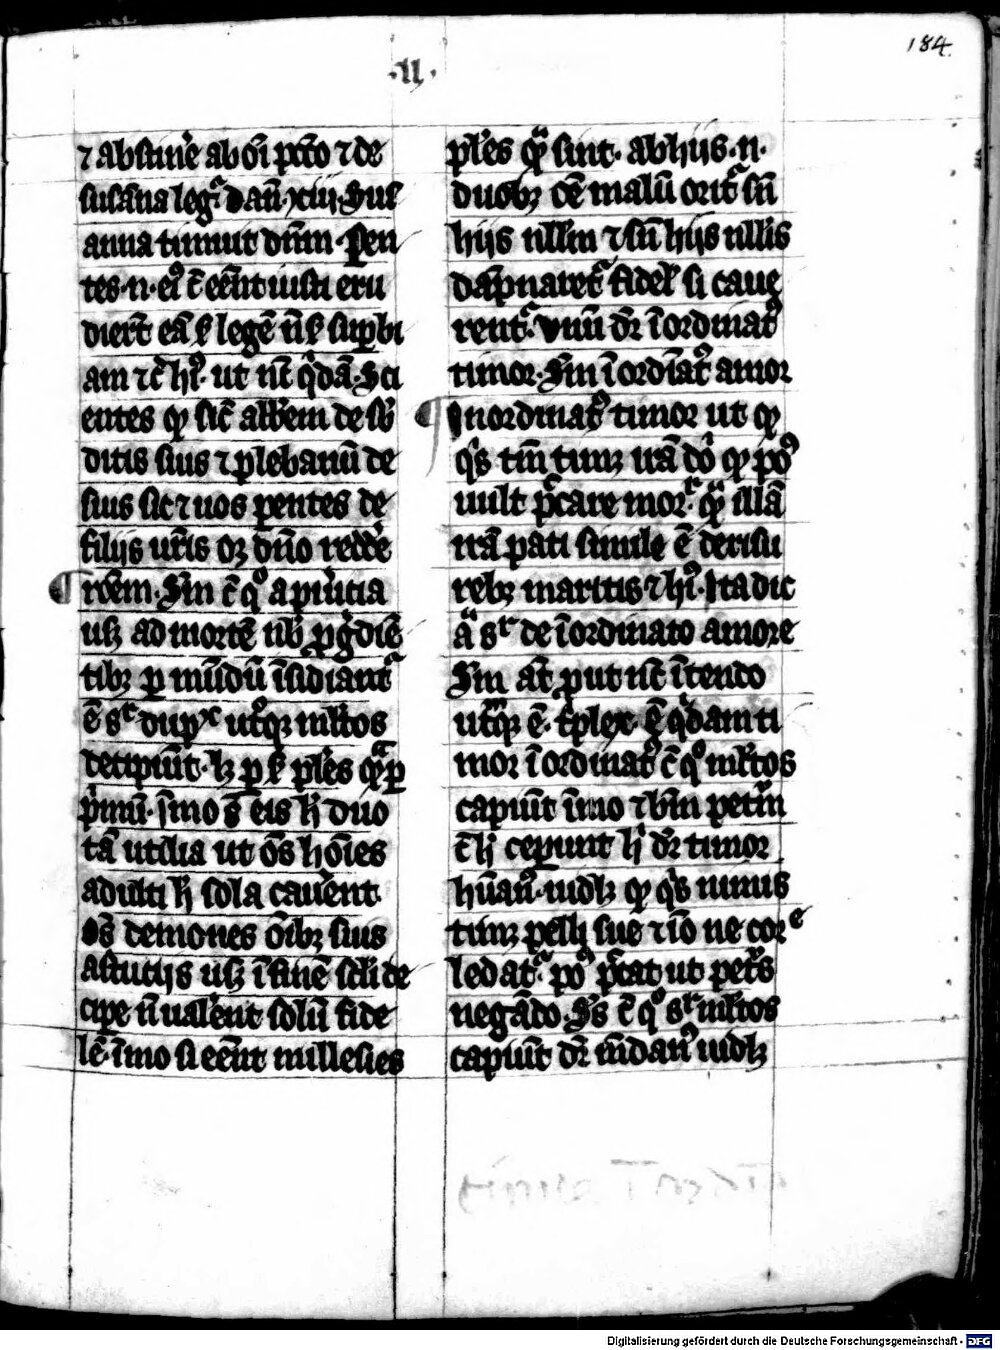 184.
·II·
⁊ abstine᷒ ab oı̄ pctō ⁊ de
susāna legr̄ dan̄ xiij Sus
anna timuit dn̄m Paren
tes n. ei⁹ c̄ eēnt iusti eru
dierūt eā s̄ legē n̄ s̄ suꝑbi
am ⁊c̄ hı̄ ut nc̄ q̇dā Sci
entes ꝙ sic̄ abb̄em de sb̄
ditis suis ⁊ plebanū de
suis sic ⁊ uos ꝑentes de
filijs vr̄is oꝫ dn̄o redde᷒
rōem Sm̄ c̄ q° a pueritia
usꝫ ad mortē nb̄ ꝓgdiē
tibꝫ ꝑ mūdū īsidiant᷒
ē sr̄ dupˣ ut᷒qꝫ ml̄tos
decipiūt lꝫ ꝑ s̄ pl̄es qͣꝑ
pͥmū īmo s̄ eis h̄ duo
tā utilia ut ōs hoı̄es
adulti h̄ sola cauerent
Oēs demones oı̄bꝫ suis
astutijs usꝫ ī finē sc̄li de
cipe n̄ ualerent solū fide
lē īmo si eēnt millesies
pl̄es qͣ sint ab hijs n.
duobꝫ oē malū orit᷒ sn̄
hijs nllm̄ ⁊ sn̄ hijs nllis
dāpnaret᷒ fidel̄ si caue
rent᷒ vnū dr̄ īordinat⁹
timor Sm̄ īordinat⁹ amor
Inordinat⁹ timor ut ꝙ
qͥs tm̄ timꝫ irā dī ꝙ po⁹
uult pͨcare mor᷒ qͣ illā
irā pati simile ē de risu
rebꝫ maritis ⁊ hı̄ Ita dic
ā sr̄ de īordinato amore
Sm̄ at̄ put nc̄ ītendo
ut᷒qꝫ ē t̄plex ē q̇dam ti
mor īordinat⁹ c̄ q° ml̄tos
capiūt īmo ⁊ bm̄ petrū
c̄ h̄ ceperunt h̄ dr̄ timor
hūan⁹ uidlꝫ ꝙ qͥs nimis
timꝫ pelli sue ⁊ iō ne cor
led at᷒ po⁹ pͨcat ut petr⁹
negādo Scds̄ c̄ q° sr̄ ml̄tos
capiūt dr̄ mūdan⁹ uidlꝫ
Digitalisierung gefördert durch die Deutsche Forschungsgemeinschaft - DFG